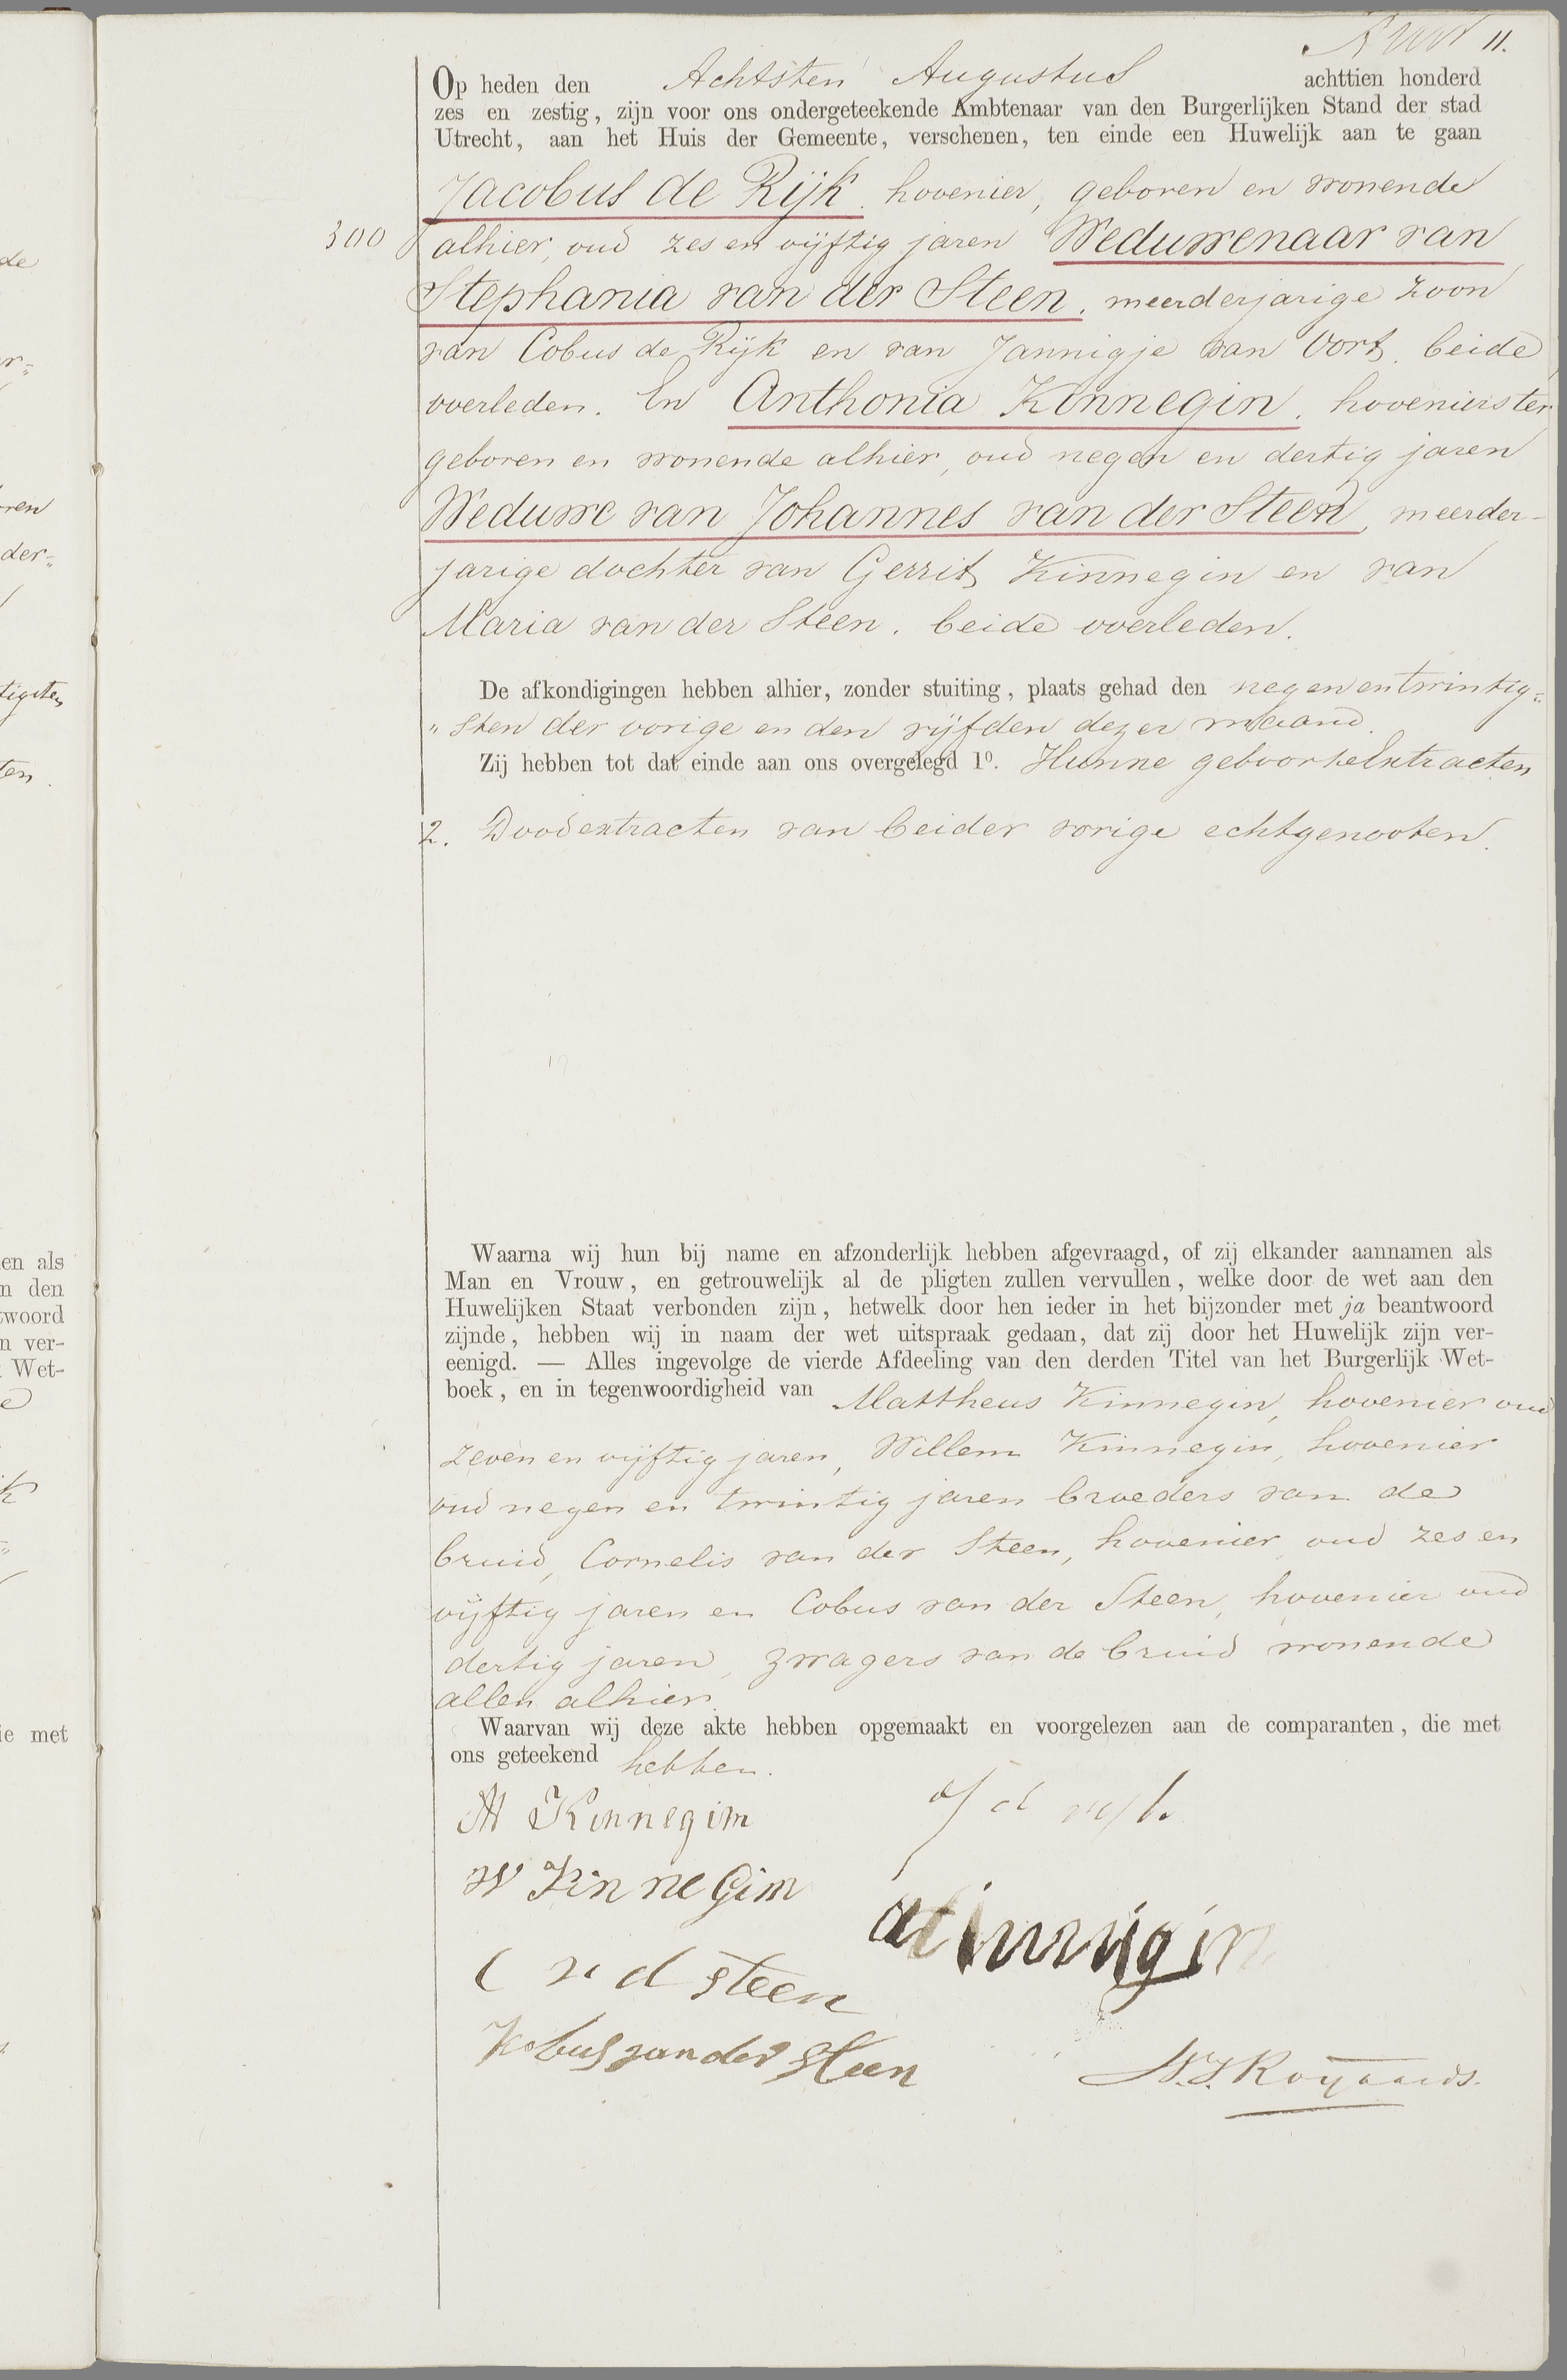 11.
Op heden den Achtsten Augustus achttien honderd
zes en zestig, zijn voor ons ondergeteekende Ambtenaar van den Burgerlijken Stand der stad
Utrecht, aan het Huis der Gemeente, verschenen, ten einde een Huwelijk aan te gaan
Jacobus de Rijk, hovenier, geboren en wonende
300 alhier, oud zes en vijftig jaren Weduwenaar van
Stephania van der Steen, meerderjarige zoon
van Cobus de Rijk en van Jannigje van Oort, beide
overleden. En Anthonia Kinnegin, hovenierster
geboren en wonende alhier, oud negen en dertig jaren
Weduwe van Johannes van der Steen, meerder-
jarige dochter van Gerrit Kinnegin en van
Maria van der Steen, beide overleden.
De afkondigingen hebben alhier, zonder stuiting, plaats gehad den negen en twintig=
"sten der vorige en den vijfden dezer maand.
Zij hebben tot dat einde aan ons overgelegd 1º. Hunne geboortelxtracten
2. Doodextracten van beider vorige echtgenooten.
Waarna wij hun bij name en afzonderlijk hebben afgevraagd, of zij elkander aannamen als
Man en Vrouw, en getrouwelijk al de pligten zullen vervullen, welke door de wet aan den
Huwelijken Staat verbonden zijn, hetwelk door hen ieder in het bijzonder met ja beantwoord
zijnde, hebben wij in naam der wet uitspraak gedaan, dat zij door het Huwelijk zijn ver-
eenigd. — Alles ingevolge de vierde Afdeeling van den derden Titel van het Burgerlijk Wet-
boek, en in tegenwoordigheid van Mattheus Kinnegin, hovenier oud
zeven en vijftig jaren, Willem Kinnegin, hovenier
oud negen en twintig jaren broeders van de
bruid, Cornelis van der Steen, hovenier oud zes en
vijftig jaren en Cobus van der Steen, hovenier oud
dertig jaren, zwagers van de bruid wonende
allen alhier.
Waarvan wij deze akte hebben opgemaakt en voorgelezen aan de comparanten, die met
ons geteekend hebben.
M Kinnegim
W Kinnegim
C v d steen
Kobus van der Steen